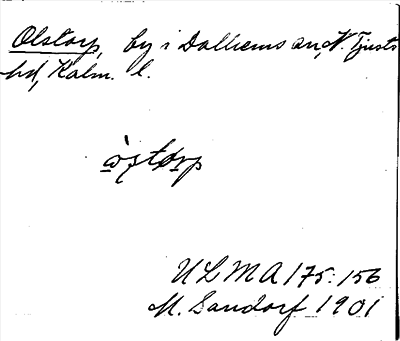 Olstorp, by i Dalhems sn, N. Tjusts
hd, Kalm. l.
òstòrp
ULMA 175:156
M. Sandorf 1901